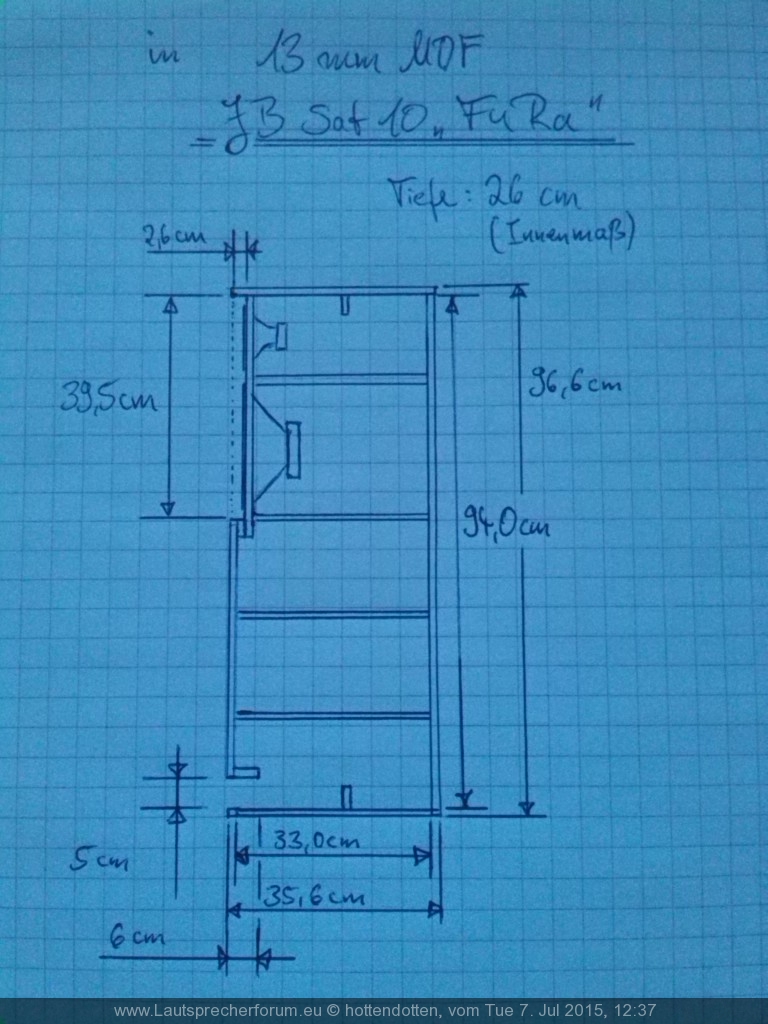 in 13 mm MDF
= JB Sat 10 „FuRa"
Tiefe: 26 cm
(Innenmaß)
2,6cm
39,5cm
96,6cm
94,0cm
33,0cm
5cm
35,6cm
6cm
www.Lautsprecherforum.eu © hottendotten, vom Tue 7. Jul 2015, 12:37